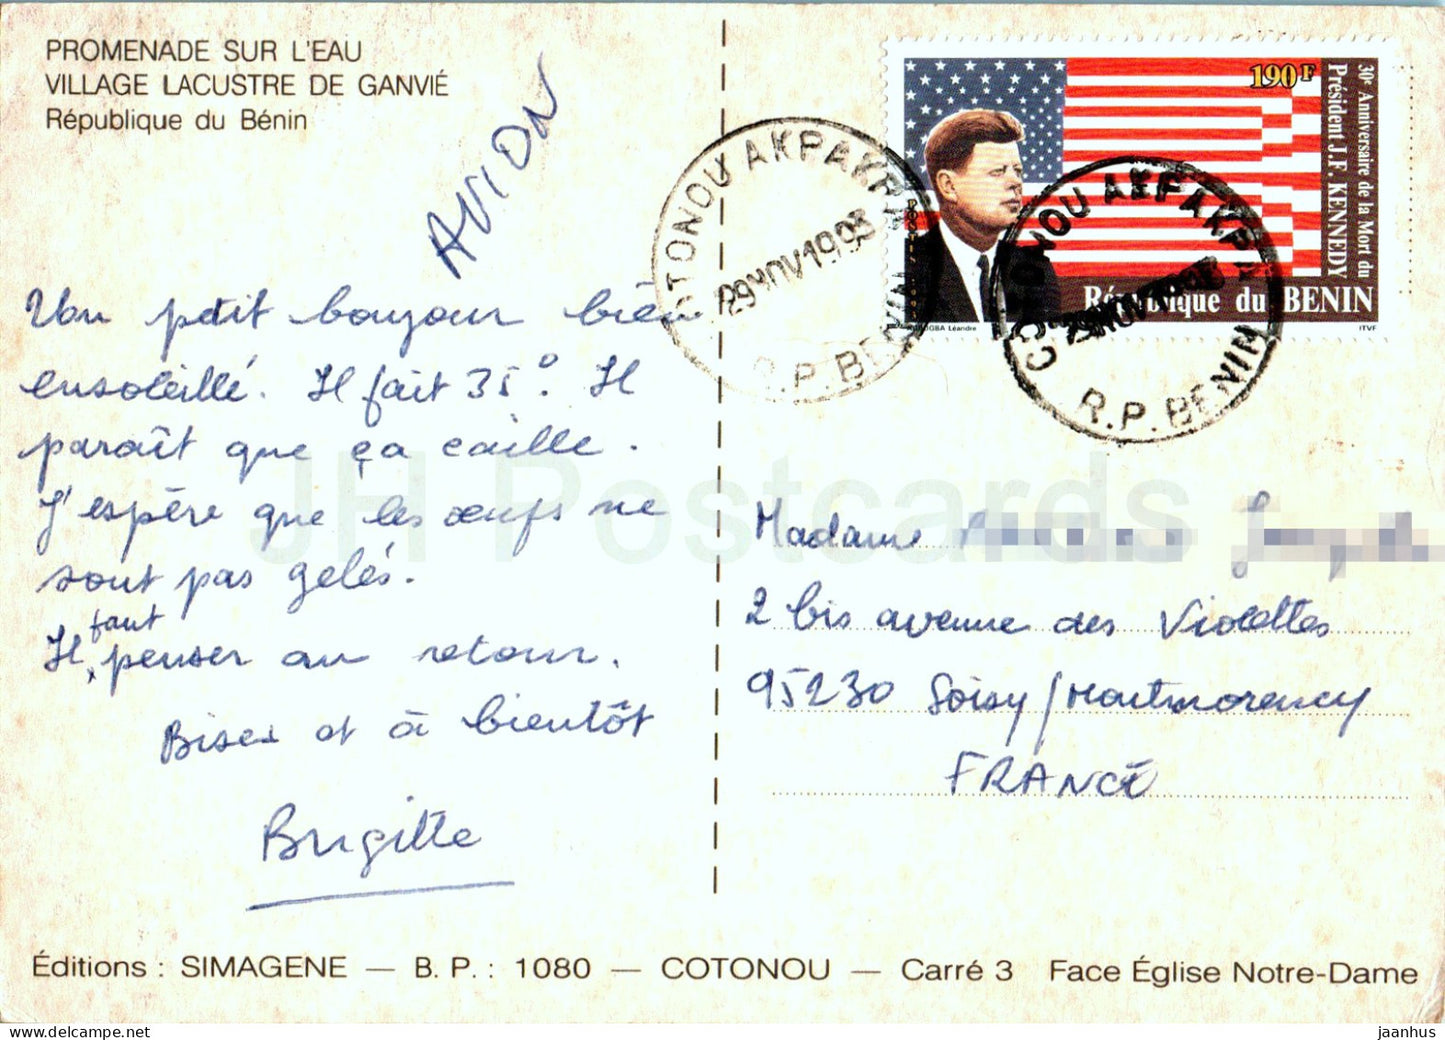 PROMENADE SUR L'EAU
VILLAGE LACUSTRE DE GANVIÉ
République du Bénin
AVION
Un petit bonjour bien
ensoleillé. Il fait 35°. Il
paraît que ça caille.
J'espère que les œufs ne
sont pas gelés.
Il faut penser au retour.
Bises et à bientôt
Brigitte
190F
30e Anniversaire de la Mort du
Président J.F. KENNEDY
République du BENIN
Léandre
ITVF
COTONOU AKPAKPA
29 NOV 1993
R.P. BENIN
COTONOU AKPAKPA
29 NOV 1993
R.P. BENIN
Madame
2 bis avenue des Violettes
95230 Soisy/Montmorency
FRANCE
Éditions : SIMAGENE — B. P. : 1080 — COTONOU — Carré 3 Face Église Notre-Dame
JH Postcards
jaanhus